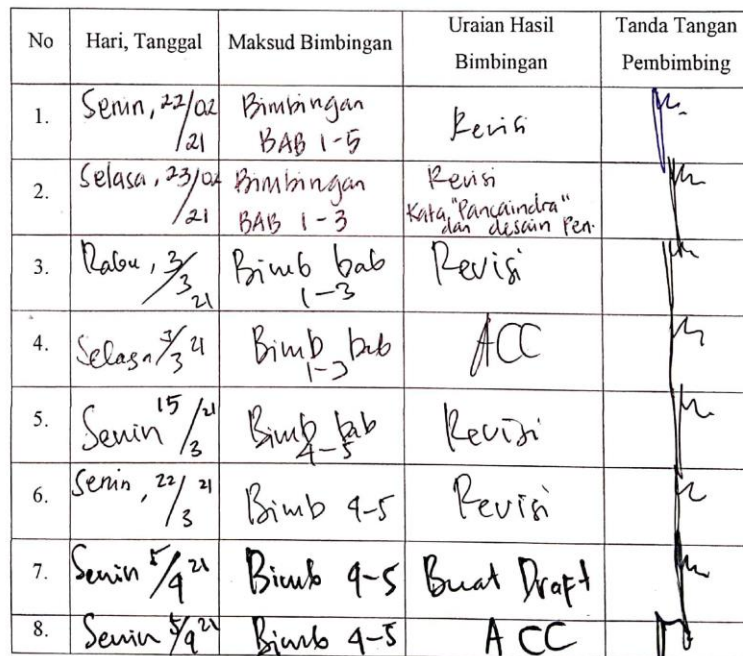 No Hari, Tanggal Maksud Bimbingan Uraian Hasil Bimbingan Tanda Tangan Pembimbing
1. Senin, 22/02/21 Bimbingan BAB 1-5 Revisi
2. Selasa, 23/02/21 Bimbingan BAB 1-3 Revisi Kata "Pancaindra" dan desain Pen.
3. Rabu, 3/3 21 Bimb bab 1-3 Revisi
4. Selasa /3 21 Bimb bab 1-3 ACC
5. Senin 15/3 21 Bimb bab 4-5 Revisi
6. Senin, 22/3 21 Bimb 4-5 Revisi
7. Senin 5/4 21 Bimb 4-5 Buat Draft
8. Senin 5/4 21 Bimb 4-5 ACC